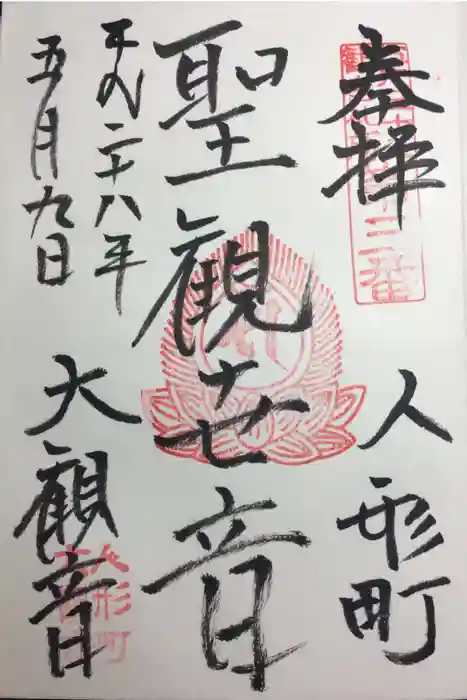 奉拝
人形町
聖観世音
平成二十八年
五月九日
大観音
三番
人形町